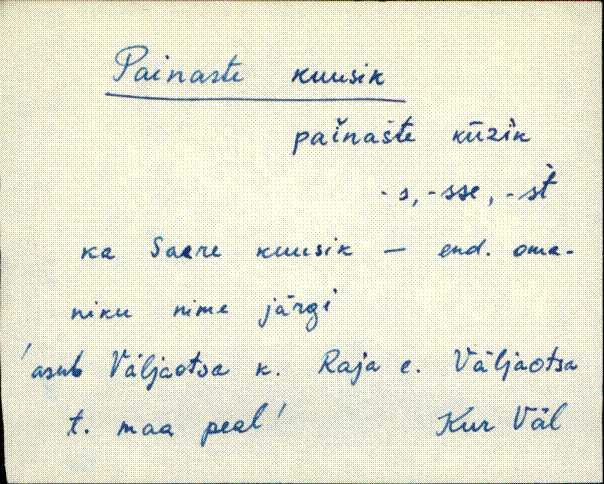 Painaste kuusik
paìnašte kūzìk
- s, - sse, - st̀
ka Saare kuusik — end. oma-
niku nime järgi
'asub Väljaotsa k. Raja e. Väljaotsa
t. maa peal'
Kur Väl